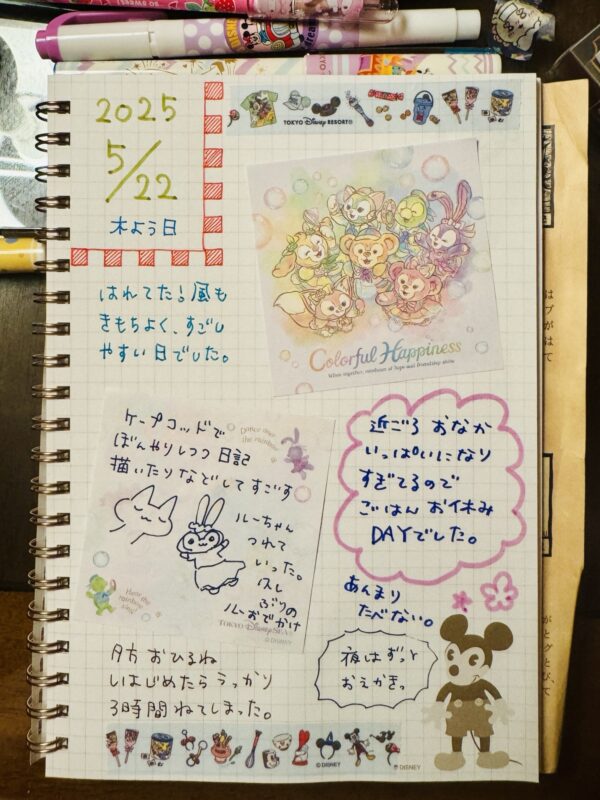 2025
5/22
木よう日
TOKYO Disney RESORT®
はれてた！風も
きもちよく、すごし
やすい日でした。
Colorful Happiness
When together, rainbows of hope and friendship shine
ケープコッドで
ぼんやりしつつ 日記
描いたりなどしてすごす
Dance over
the rainbow
ルーちゃん
つれて
いった。
久し
ぶりの
ルーおでかけ
Hear the
rainbow
sing!
TOKYO DisneySEA
© DISNEY
近ごろ おなか
いっぱいになり
すぎてるので
ごはん お休み
DAYでした。
あんまり
たべない。
夕方 おひるね
しはじめたらうっかり
3時間ねてしまった。
夜はずっと
おえかきっ
© DISNEY
© DISNEY